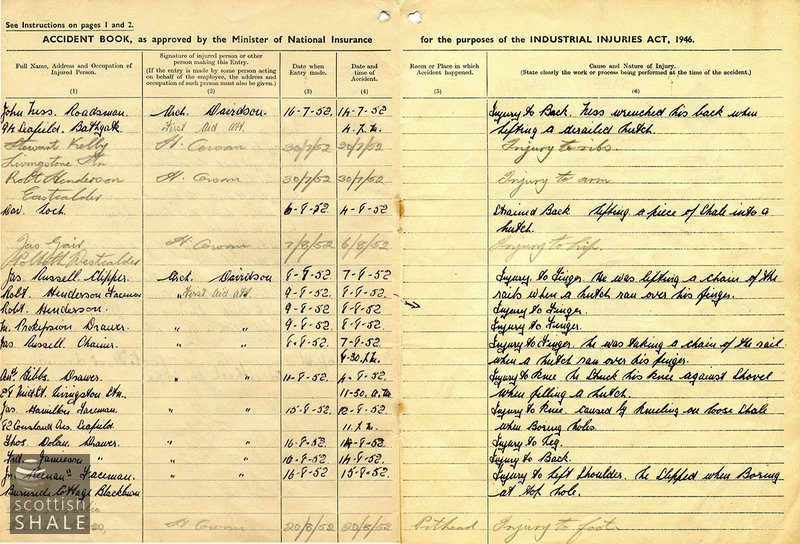 See Instructions on pages 1 and 2.
ACCIDENT BOOK, as approved by the Minister of National Insurance for the purposes of the INDUSTRIAL INJURIES ACT, 1946.
Full Name, Address and Occupation of Injured Person. (1)
Signature of injured person or other person making this Entry. (If the entry is made by some person acting on behalf of the employee, the address and occupation of such person must also be given.) (2)
Date when Entry made. (3)
Date and time of Accident. (4)
Room or Place in which Accident happened. (5)
Cause and Nature of Injury. (State clearly the work or process being performed at the time of the accident.) (6)
John Tuss. Roadsman. Arch. Davidson 16-7-52. 14-7-52. Injury to Back. Tuss wrenched his back when
94 Leafield. Bathgate First Aid Att. 4.P.M. lifting a derailed hutch.
Stewart Kelly 30/7/52 30/7/52 Injury to ribs.
Livingstone Stn
Robt Henderson 30/7/52 30/7/52 Injury to arm
Eastcalder
Dav. Loch. 6-8-52 4-8-52 Strained Back lifting a piece of Shale into a
hutch.
Jas Gair 7/8/52 6/8/52 Injury to hip
Westcalder
Jas. Russell Clipper. Arch. Davidson 8-8-52. 7-8-52 Injury to Finger. He was lifting a chain of the
Robt. Henderson Faceman " First Aid Att. 9-8-52. 8-8-52. rails when a hutch ran over his finger.
Robt. Henderson. 9-8-52 8-8-52 Injury to Finger.
Drawer. " " 9-8-52. 8-8-52. Injury to Finger.
Jas. Russell Chainer. " " 8-8-52 7-8-52 Injury to Finger. He was taking a chain of the rail
4-30.P.M. when a hutch ran over his finger.
Ant. Gibbs. Drawer. " " 11-8-52. Injury to Knee He struck his knee against Shovel
Livingston Stn. 11-50. A.M when filling a hutch.
Jas. Hamilton Faceman. " " 15-8-52 12-8-52 Injury to Knee. caused by kneeling on loose Shale
Seafield 11.P.M. when Boring holes.
Thos. Dolan Drawer. " " 16-8-52 14-8-52 Injury to Leg.
Jamieson " " " 14-8-52. Injury to Back.
Faceman. " " 16-8-52 15-8-52. Injury to Left Shoulder. He slipped when Boring
Burnside Cottage Blackburn at top hole.
20/8/52 20/8/52 Pithead Injury to foot
scottish
SHALE